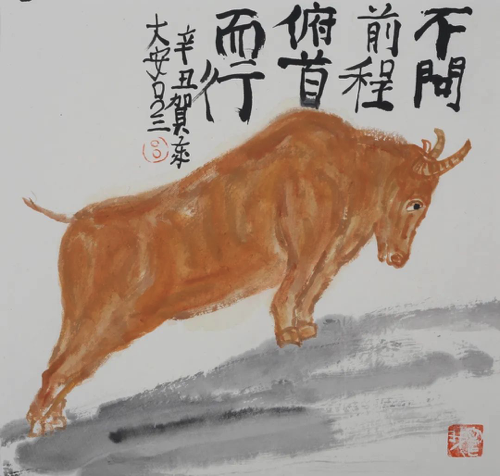 不問
前程
俯首
而行
辛丑賀歲
大安